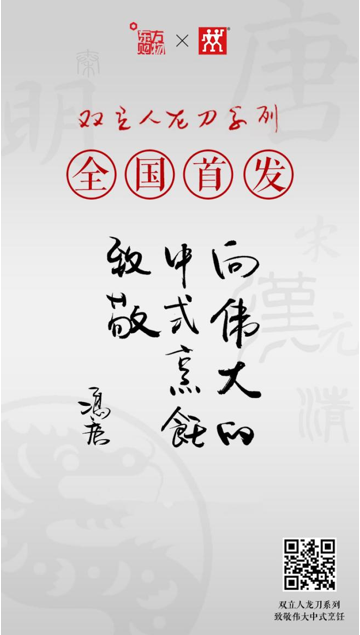 东方购物
双立人龙刀系列
全国首发
向伟大的
中式烹飪
致敬
双立人龙刀系列
致敬伟大中式烹饪
唐
秦
明
宋
漢
元
清